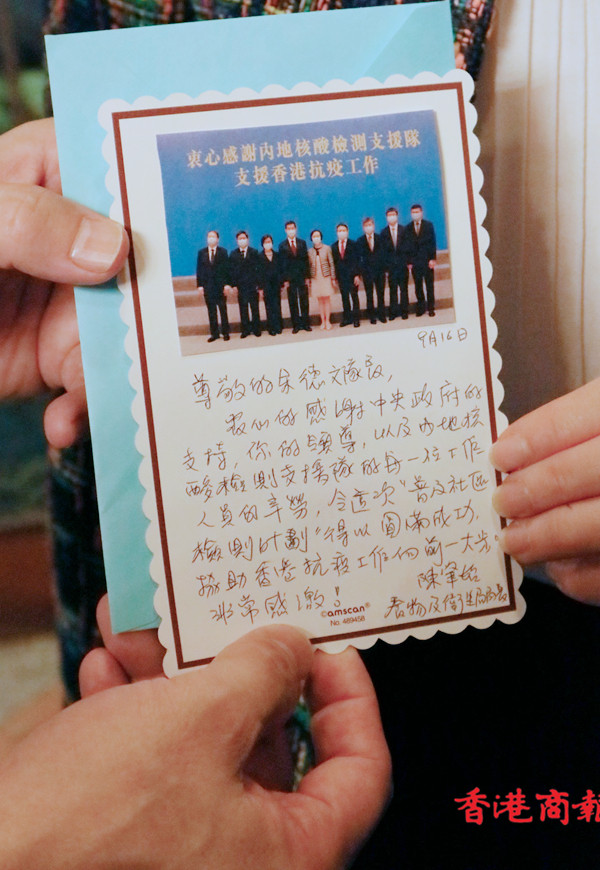 衷心感謝內地核酸檢測支援隊
支援香港抗疫工作
9月16日
尊敬的余德文隊長,
衷心的感謝中央政府的
支持,你的領導,以及內地核
酸檢測支援隊的每一位工作
人員的辛勞,令這次"普及社區
檢測計劃"得以圓滿成功,
協助香港抗疫工作向前一大步。
非常感激!
陳肇始
食物及衞生局局長
©amscan®
No. 489458
香港商報